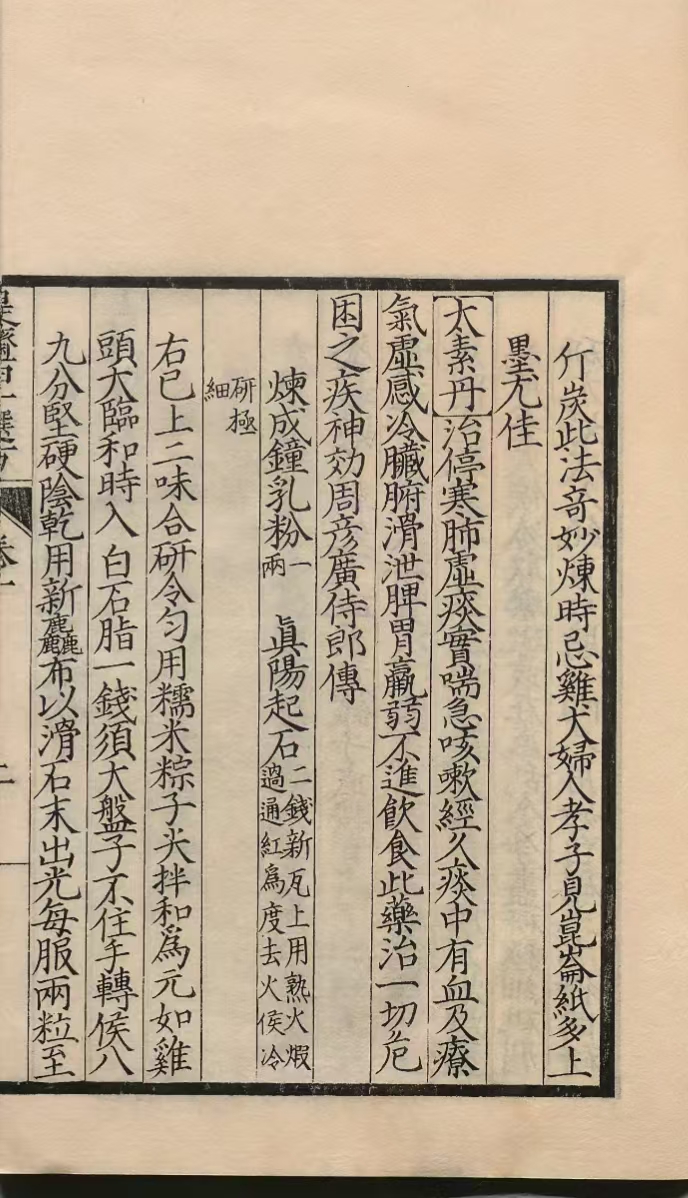 斤炭此法奇妙煉時忌雞犬婦人孝子見崑崙紙多上
墨尤佳
太素丹治停寒肺虛痰實喘急咳嗽經久痰中有血及療
氣虛感冷臟腑滑泄脾胃羸弱不進飲食此藥治一切危
困之疾神効周彥廣侍郎傳
煉成鐘乳粉一兩　眞陽起石二錢新瓦上用熟火煆
過通紅爲度去火候冷
研極
細
右已上二味合研令勻用糯米粽子尖拌和爲元如雞
頭大臨和時入白石脂一錢須大盤子不住手轉候八
九分堅硬陰乾用新麤布以滑石末出光每服兩粒至
是齋百一選方　卷十　二